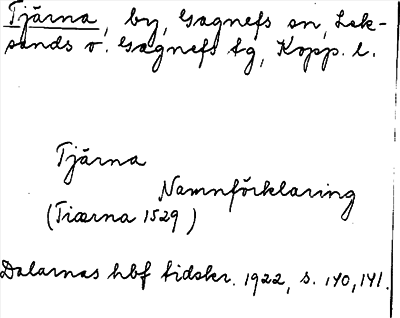 Tjärna, by, Gagnefs sn, Lek-
sands o. Gagnefs tg, Kopp. l.
Tjärna
Namnförklaring
(Tiærna 1529)
Dalarnas hbf tidskr. 1922, s. 140, 141.